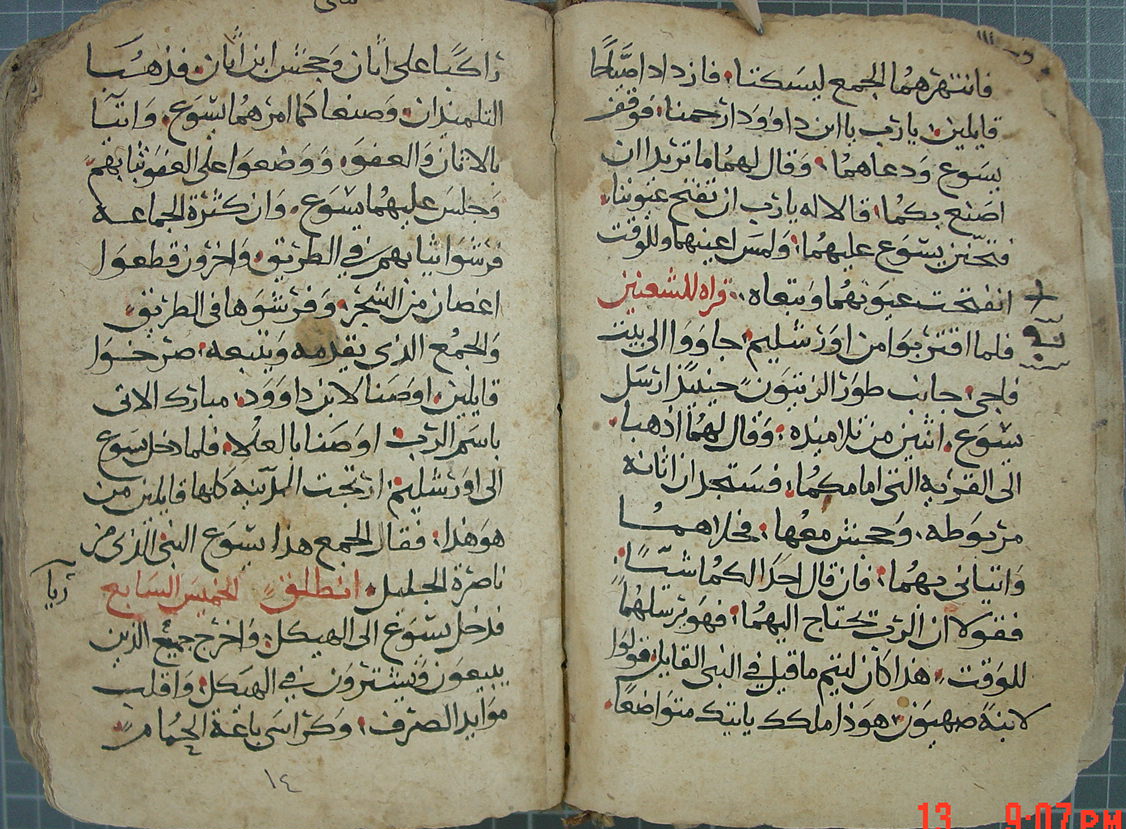 فانتهرهما الجمع ليسكتا، فازدادا صياحًا
قايلين: يارب يا ابن داوود ارحمنا، فوقف
يسوع ودعاهما، وقال لهما ما تريدا ان
اصنع بكما، قالا له يارب ان تفتح عيوننا،
فتحنن يسوع عليهما، ولمس اعينهما وللوقت
انفتحت عيونهما وتبعاه. قراه للشعنين
فلما اقتربوا من اورشليم، جاووا الى بيت
فاجي، جانب طور الزيتون حينيذ ارسل
يسوع. اثنين من تلاميذه، وقال لهما اذهبا.
الى القرية التي امامكما، فستجدان اتانه
مربوطه، وجحش معها، فحلاهما
واتياني بهما، فان قال احد الكما شيًا،
فقولا ان الرب يحتاج اليهما، فهو يرسلهما
للوقت. هذا كان ليتم ما قيل في النبي القايل، قولوا
لابنة صهيون، هوذا ملكك ياتيك متواضعًا.
راكبًا على اتان وجحش ابن اتان. فذهبا
التلميذان وصنعا كما امرهما يسوع، واتيا
بالاتان والعفو، ووضعوا على العفو ثيابهم
وجلس عليهما يسوع. وان كثرة الجماعه
فرشوا ثيابهم في الطريق، واخرون قطعوا
اغصان من الشجر، وفرشوها في الطريق
والجمع الذي يقدمه ويتبعه، صرخوا
قايلين، اوصنا لابن داوود، مبارك الاتي
باسم الرب، اوصنا بالعلا، فلما دخل يسوع
الى اورشليم، ارتجت المدينه كلها قايلين من
هو هذا، فقال الجمع هذا يسوع النبي الذي من
ناصرة الجليل. انطلق الخميس السابع
فدخل يسوع الى الهيكل، واخرج جميع الذين
يبيعون ويشترون في الهيكل، واقلب
موايد الصرف، وكراسي باعة الحمام
١٤
13 9:07PM